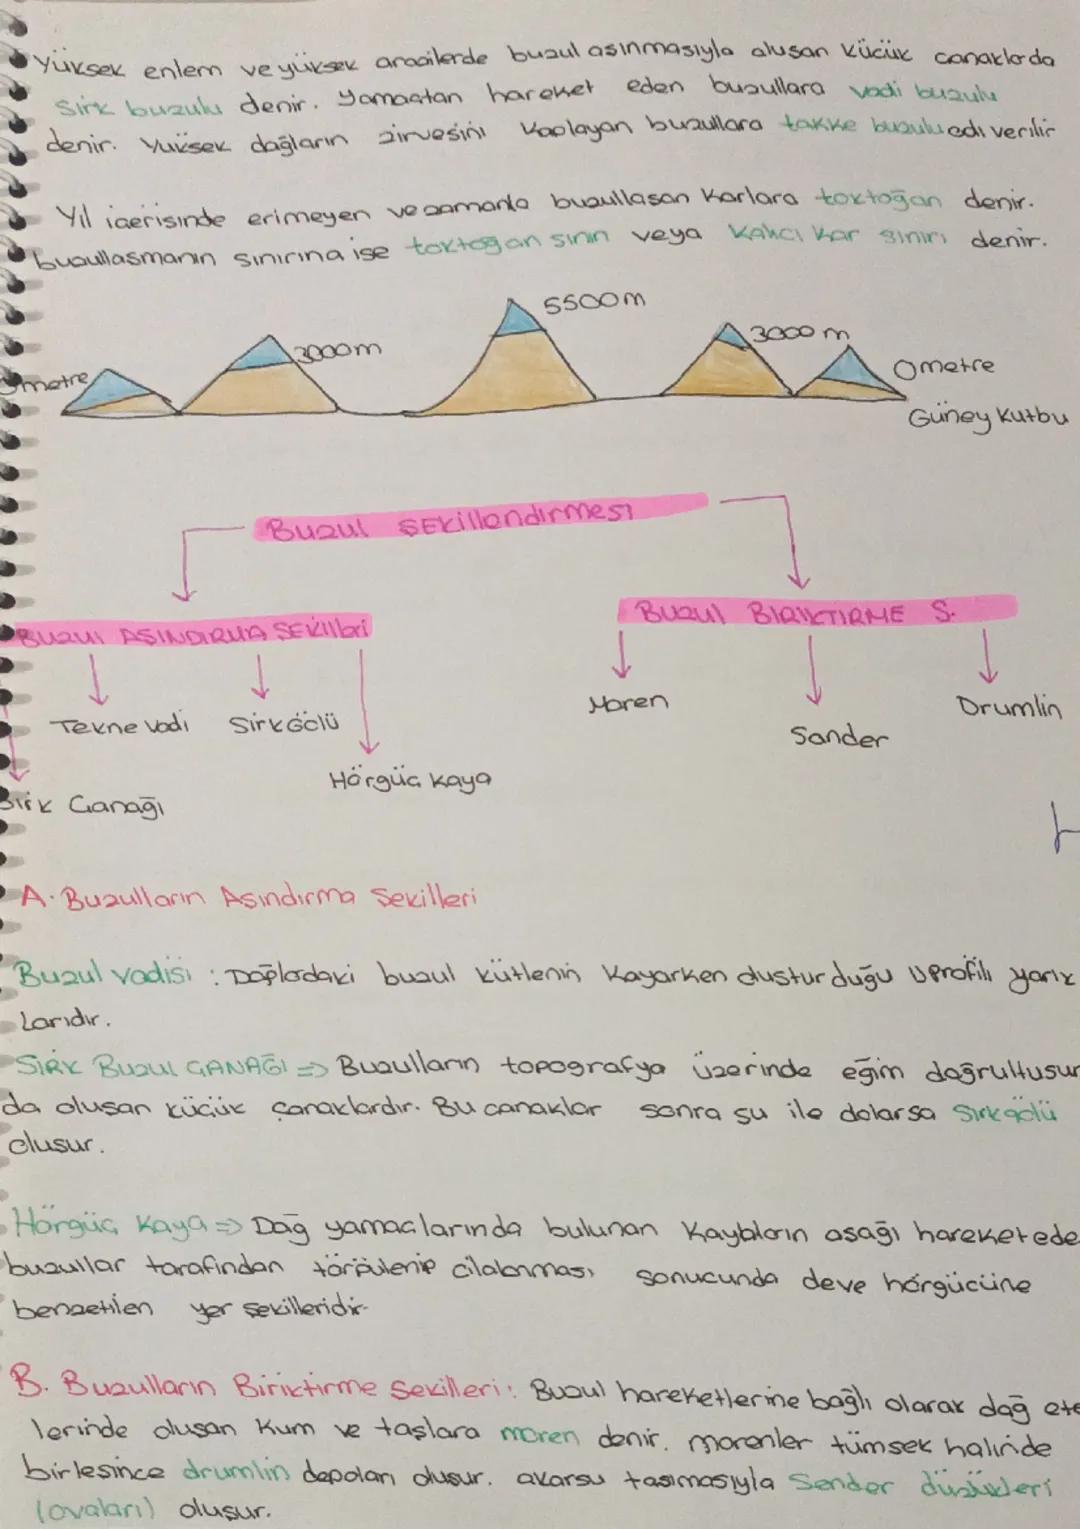 Yüksek enlem ve yüksek arazilerde buzul aşınmasıyla oluşan küçük çanaklarda
Sirk buzulu denir. Yamaçtan hareket eden buzullara vadi buzulu
denir. Yüksek dağların zirvesini kaplayan buzullara takke buzulu adı verilir
Yıl içerisinde erimeyen ve zamanla buzullaşan karlara toktoğan denir.
buzullaşmanın sınırına ise toktoğan sınırı veya kalıcı kar sınırı denir.
5500 m
3000 m
3000 m
0 metre
metre
Güney Kutbu
Buzul ŞEKillendirmesi
BUZUl AŞINDIRMA ŞEKilleri
BUZUl BİRİKTİRME Ş.
Tekne Vadi Sirk Gölü
Moren
Sander
Drumlin
Hörgüç Kaya
Sirk Çanağı
A. Buzulların Aşındırma Şekilleri
Buzul vadisi : Dağlardaki buzul kütlenin kayarken oluşturduğu U profili yarık
larıdır.
SİRK BUZUL ÇANAĞI => Buzulların topografya üzerinde eğim doğrultusun
da oluşan küçük çanaklardır. Bu çanaklar sonra su ile dolarsa Sirk gölü
oluşur.
Hörgüç Kaya => Dağ yamaçlarında bulunan kayaların aşağı hareket ede
buzullar tarafından törpülenip cilalanması sonucunda deve hörgücüne
benzetilen yer şekilleridir.
B. Buzulların Biriktirme Şekilleri: Buzul hareketlerine bağlı olarak dağ ete
lerinde oluşan kum ve taşlara moren denir. Morenler tümsek halinde
birleşince drumlin depoları oluşur. akarsu taşımasıyla Sender düzlükleri
(ovaları) oluşur.